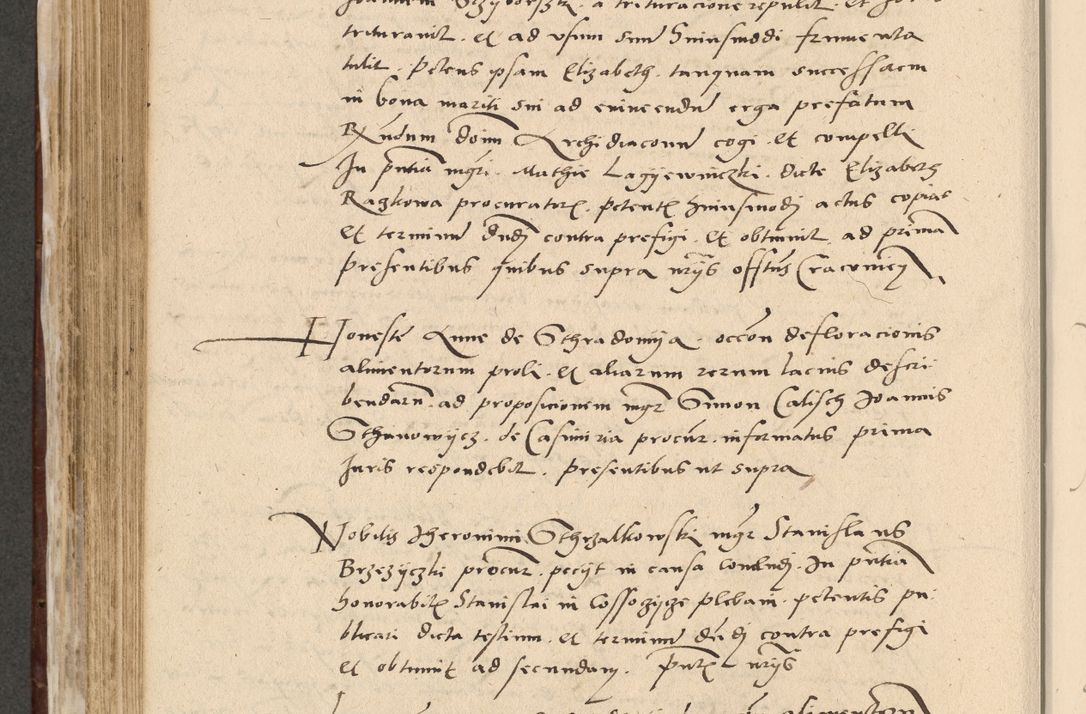 trituravit et ad usum suum huiusmodi frumenta
tulit. Petens ipsam Elizabeth tanquam
in bona mariti sui ad erga prefatum
Rndum dnm Archidiaconum cogi et compelli
In pntia mgri Mathie Lagyewniczki dicte Elizabeth
Raszkowa procuratoris petentis huiusmodi actus copias
et terminum dndj contra prefigi et obtinuit ad primam
presentibus quibus supra offtus Cracovien
Honeste Anne de Sthradomya occon defloracionis
alimentorum proli et aliarum rerum lacius descri
bendarum ad proposicionem mgr Simon Calisch Joannis
Sthanowycz de Casimiria procur informatus prima
Juris respondebit presentibus ut supra
Nobilis Hieronimi Sthrzalkowski mgr Stanislaus
Brzezyczki procur petyt in causa concludj In pntia
honorabilis Stanislai in Cossoczycze plebani petentis pu
blicari dicta testium et terminum dndj contra prefigi
et obtinuit ad secundam pntibus